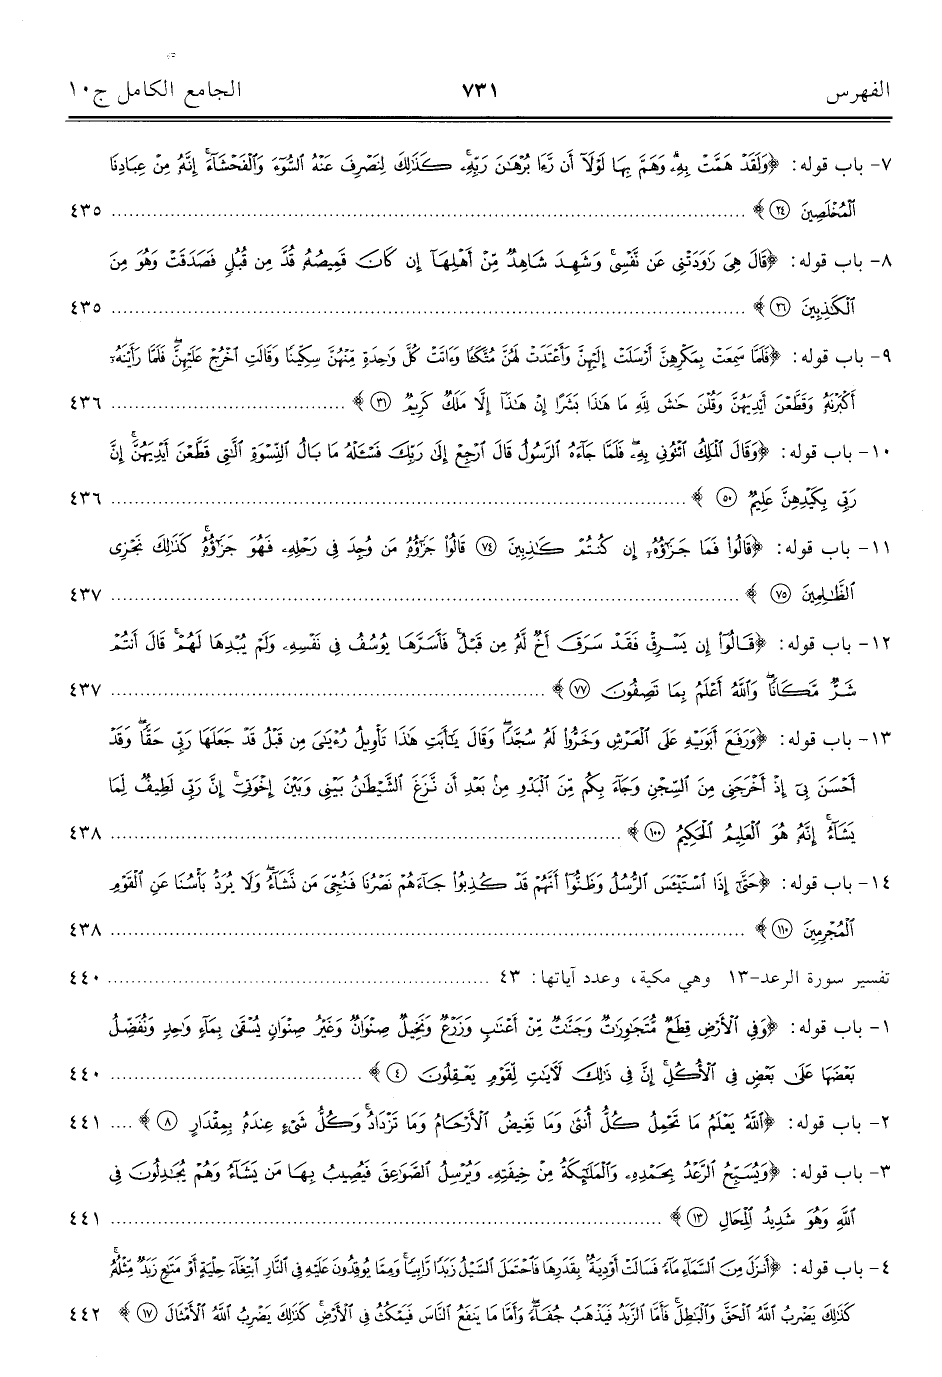 الفهرس ٧٣١ الجامع الكامل ج١٠
٧- باب قوله: ﴿وَلَقَدْ هَمَّتْ بِهِۦ وَهَمَّ بِهَا لَوْلَآ أَن رَّءَا بُرْهَٰنَ رَبِّهِۦ كَذَٰلِكَ لِنَصْرِفَ عَنْهُ ٱلسُّوٓءَ وَٱلْفَحْشَآءَ إِنَّهُۥ مِنْ عِبَادِنَا
ٱلْمُخْلَصِينَ ٢٤﴾ ........ ٤٣٥
٨- باب قوله: ﴿قَالَ هِىَ رَٰوَدَتْنِى عَن نَّفْسِى وَشَهِدَ شَاهِدٌ مِّنْ أَهْلِهَآ إِن كَانَ قَمِيصُهُۥ قُدَّ مِن قُبُلٍ فَصَدَقَتْ وَهُوَ مِنَ
ٱلْكَٰذِبِينَ ٢٦﴾ ........ ٤٣٥
٩- باب قوله: ﴿فَلَمَّا سَمِعَتْ بِمَكْرِهِنَّ أَرْسَلَتْ إِلَيْهِنَّ وَأَعْتَدَتْ لَهُنَّ مُتَّكَـًٔا وَءَاتَتْ كُلَّ وَٰحِدَةٍ مِّنْهُنَّ سِكِّينًا وَقَالَتِ ٱخْرُجْ عَلَيْهِنَّ فَلَمَّا رَأَيْنَهُۥٓ
أَكْبَرْنَهُۥ وَقَطَّعْنَ أَيْدِيَهُنَّ وَقُلْنَ حَٰشَ لِلَّهِ مَا هَٰذَا بَشَرًا إِنْ هَٰذَآ إِلَّا مَلَكٌ كَرِيمٌ ٣١﴾ ........ ٤٣٦
١٠- باب قوله: ﴿وَقَالَ ٱلْمَلِكُ ٱئْتُونِى بِهِۦ فَلَمَّا جَآءَهُ ٱلرَّسُولُ قَالَ ٱرْجِعْ إِلَىٰ رَبِّكَ فَسْـَٔلْهُ مَا بَالُ ٱلنِّسْوَةِ ٱلَّٰتِى قَطَّعْنَ أَيْدِيَهُنَّ إِنَّ
رَبِّى بِكَيْدِهِنَّ عَلِيمٌ ٥٠﴾ ........ ٤٣٦
١١- باب قوله: ﴿قَالُوا۟ فَمَا جَزَٰٓؤُهُۥٓ إِن كُنتُمْ كَٰذِبِينَ ٧٤ قَالُوا۟ جَزَٰٓؤُهُۥ مَن وُجِدَ فِى رَحْلِهِۦ فَهُوَ جَزَٰٓؤُهُۥ كَذَٰلِكَ نَجْزِى
ٱلظَّٰلِمِينَ ٧٥﴾ ........ ٤٣٧
١٢- باب قوله: ﴿قَالُوٓا۟ إِن يَسْرِقْ فَقَدْ سَرَقَ أَخٌ لَّهُۥ مِن قَبْلُ فَأَسَرَّهَا يُوسُفُ فِى نَفْسِهِۦ وَلَمْ يُبْدِهَا لَهُمْ قَالَ أَنتُمْ
شَرٌّ مَّكَانًا وَٱللَّهُ أَعْلَمُ بِمَا تَصِفُونَ ٧٧﴾ ........ ٤٣٧
١٣- باب قوله: ﴿وَرَفَعَ أَبَوَيْهِ عَلَى ٱلْعَرْشِ وَخَرُّوا۟ لَهُۥ سُجَّدًا وَقَالَ يَٰٓأَبَتِ هَٰذَا تَأْوِيلُ رُءْيَٰىَ مِن قَبْلُ قَدْ جَعَلَهَا رَبِّى حَقًّا وَقَدْ
أَحْسَنَ بِىٓ إِذْ أَخْرَجَنِى مِنَ ٱلسِّجْنِ وَجَآءَ بِكُم مِّنَ ٱلْبَدْوِ مِنۢ بَعْدِ أَن نَّزَغَ ٱلشَّيْطَٰنُ بَيْنِى وَبَيْنَ إِخْوَتِىٓ إِنَّ رَبِّى لَطِيفٌ لِّمَا
يَشَآءُ إِنَّهُۥ هُوَ ٱلْعَلِيمُ ٱلْحَكِيمُ ١٠٠﴾ ........ ٤٣٨
١٤- باب قوله: ﴿حَتَّىٰٓ إِذَا ٱسْتَيْـَٔسَ ٱلرُّسُلُ وَظَنُّوٓا۟ أَنَّهُمْ قَدْ كُذِبُوا۟ جَآءَهُمْ نَصْرُنَا فَنُجِّىَ مَن نَّشَآءُ وَلَا يُرَدُّ بَأْسُنَا عَنِ ٱلْقَوْمِ
ٱلْمُجْرِمِينَ ١١٠﴾ ........ ٤٣٨
تفسير سورة الرعد-١٣ وهي مكية، وعدد آياتها: ٤٣ ........ ٤٤٠
١- باب قوله: ﴿وَفِى ٱلْأَرْضِ قِطَعٌ مُّتَجَٰوِرَٰتٌ وَجَنَّٰتٌ مِّنْ أَعْنَٰبٍ وَزَرْعٌ وَنَخِيلٌ صِنْوَانٌ وَغَيْرُ صِنْوَانٍ يُسْقَىٰ بِمَآءٍ وَٰحِدٍ وَنُفَضِّلُ
بَعْضَهَا عَلَىٰ بَعْضٍ فِى ٱلْأُكُلِ إِنَّ فِى ذَٰلِكَ لَءَايَٰتٍ لِّقَوْمٍ يَعْقِلُونَ ٤﴾ ........ ٤٤٠
٢- باب قوله: ﴿ٱللَّهُ يَعْلَمُ مَا تَحْمِلُ كُلُّ أُنثَىٰ وَمَا تَغِيضُ ٱلْأَرْحَامُ وَمَا تَزْدَادُ وَكُلُّ شَىْءٍ عِندَهُۥ بِمِقْدَارٍ ٨﴾ .... ٤٤١
٣- باب قوله: ﴿وَيُسَبِّحُ ٱلرَّعْدُ بِحَمْدِهِۦ وَٱلْمَلَٰٓئِكَةُ مِنْ خِيفَتِهِۦ وَيُرْسِلُ ٱلصَّوَٰعِقَ فَيُصِيبُ بِهَا مَن يَشَآءُ وَهُمْ يُجَٰدِلُونَ فِى
ٱللَّهِ وَهُوَ شَدِيدُ ٱلْمِحَالِ ١٣﴾ ........ ٤٤١
٤- باب قوله: ﴿أَنزَلَ مِنَ ٱلسَّمَآءِ مَآءً فَسَالَتْ أَوْدِيَةٌۢ بِقَدَرِهَا فَٱحْتَمَلَ ٱلسَّيْلُ زَبَدًا رَّابِيًا وَمِمَّا يُوقِدُونَ عَلَيْهِ فِى ٱلنَّارِ ٱبْتِغَآءَ حِلْيَةٍ أَوْ مَتَٰعٍ زَبَدٌ مِّثْلُهُۥ
كَذَٰلِكَ يَضْرِبُ ٱللَّهُ ٱلْحَقَّ وَٱلْبَٰطِلَ فَأَمَّا ٱلزَّبَدُ فَيَذْهَبُ جُفَآءً وَأَمَّا مَا يَنفَعُ ٱلنَّاسَ فَيَمْكُثُ فِى ٱلْأَرْضِ كَذَٰلِكَ يَضْرِبُ ٱللَّهُ ٱلْأَمْثَالَ ١٧﴾ ٤٤٢